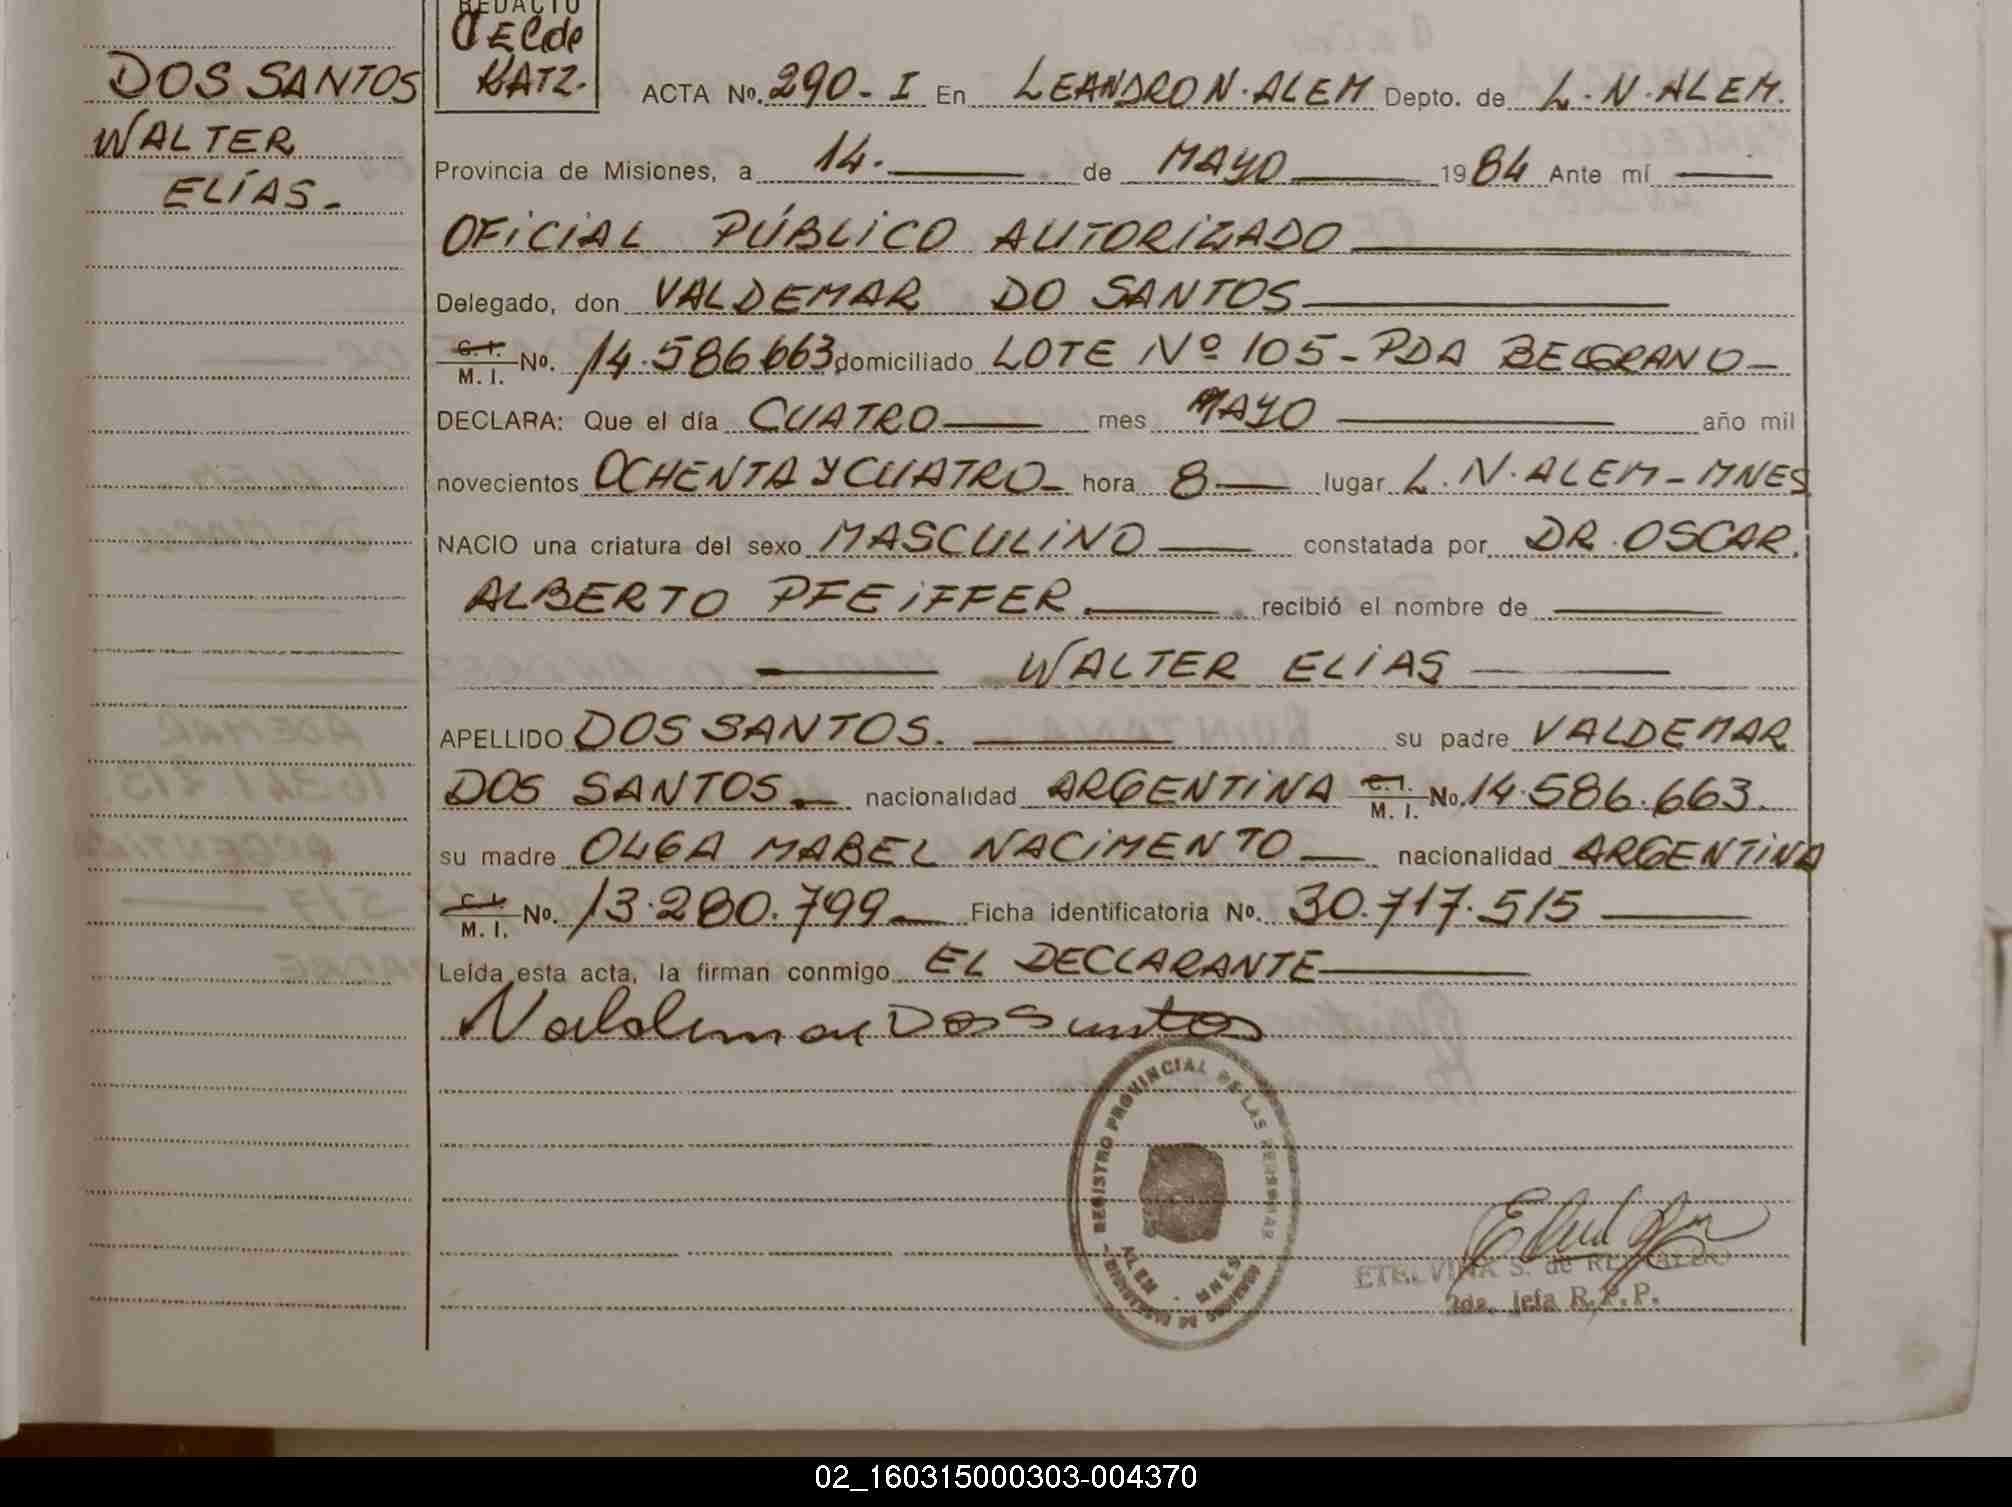 REDACTO
KATZ.
DOS SANTOS
WALTER
ELÍAS.-
ACTA No. 290-I En LEANDRO N. ALEM Depto. de L. N. ALEM.
Provincia de Misiones, a 14. de MAYO 1984 Ante mí
OFICIAL PÚBLICO AUTORIZADO
Delegado, don VALDEMAR DO SANTOS
C. I.
M. I. No. 14.586.663 domiciliado LOTE Nº 105-PDA BELGRANO-
DECLARA: Que el día CUATRO mes MAYO año mil
novecientos OCHENTA Y CUATRO- hora 8 lugar L. N. ALEM-MNES
NACIO una criatura del sexo MASCULINO constatada por DR. OSCAR
ALBERTO PFEIFFER. recibió el nombre de
WALTER ELIAS
APELLIDO DOS SANTOS. su padre VALDEMAR
DOS SANTOS.- nacionalidad ARGENTINA C. I. M. I. No. 14.586.663.
su madre OLGA MABEL NACIMENTO nacionalidad ARGENTINA
C. I.
M. I. No. 13.280.799 Ficha identificatoria No. 30.717.515
Leída esta acta, la firman conmigo EL DECLARANTE
Valdemar Dos Santos
REGISTRO PROVINCIAL DE LAS PERSONAS
ALEM - MNES.
ETELVINA S. de
2da. Jefa R.P.P.
02_160315000303-004370